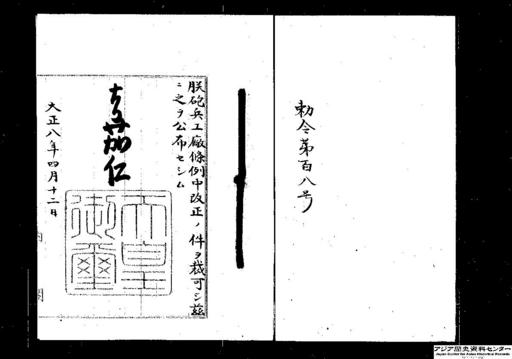 勅令第百八号
朕砲兵工廠條例中改正ノ件ヲ裁可シ茲
ニ之ヲ公布セシム
嘉仁
天皇
御璽
大正八年四月十二日
内閣
アジア歴史資料センター
Japan Center for Asian Historical Records